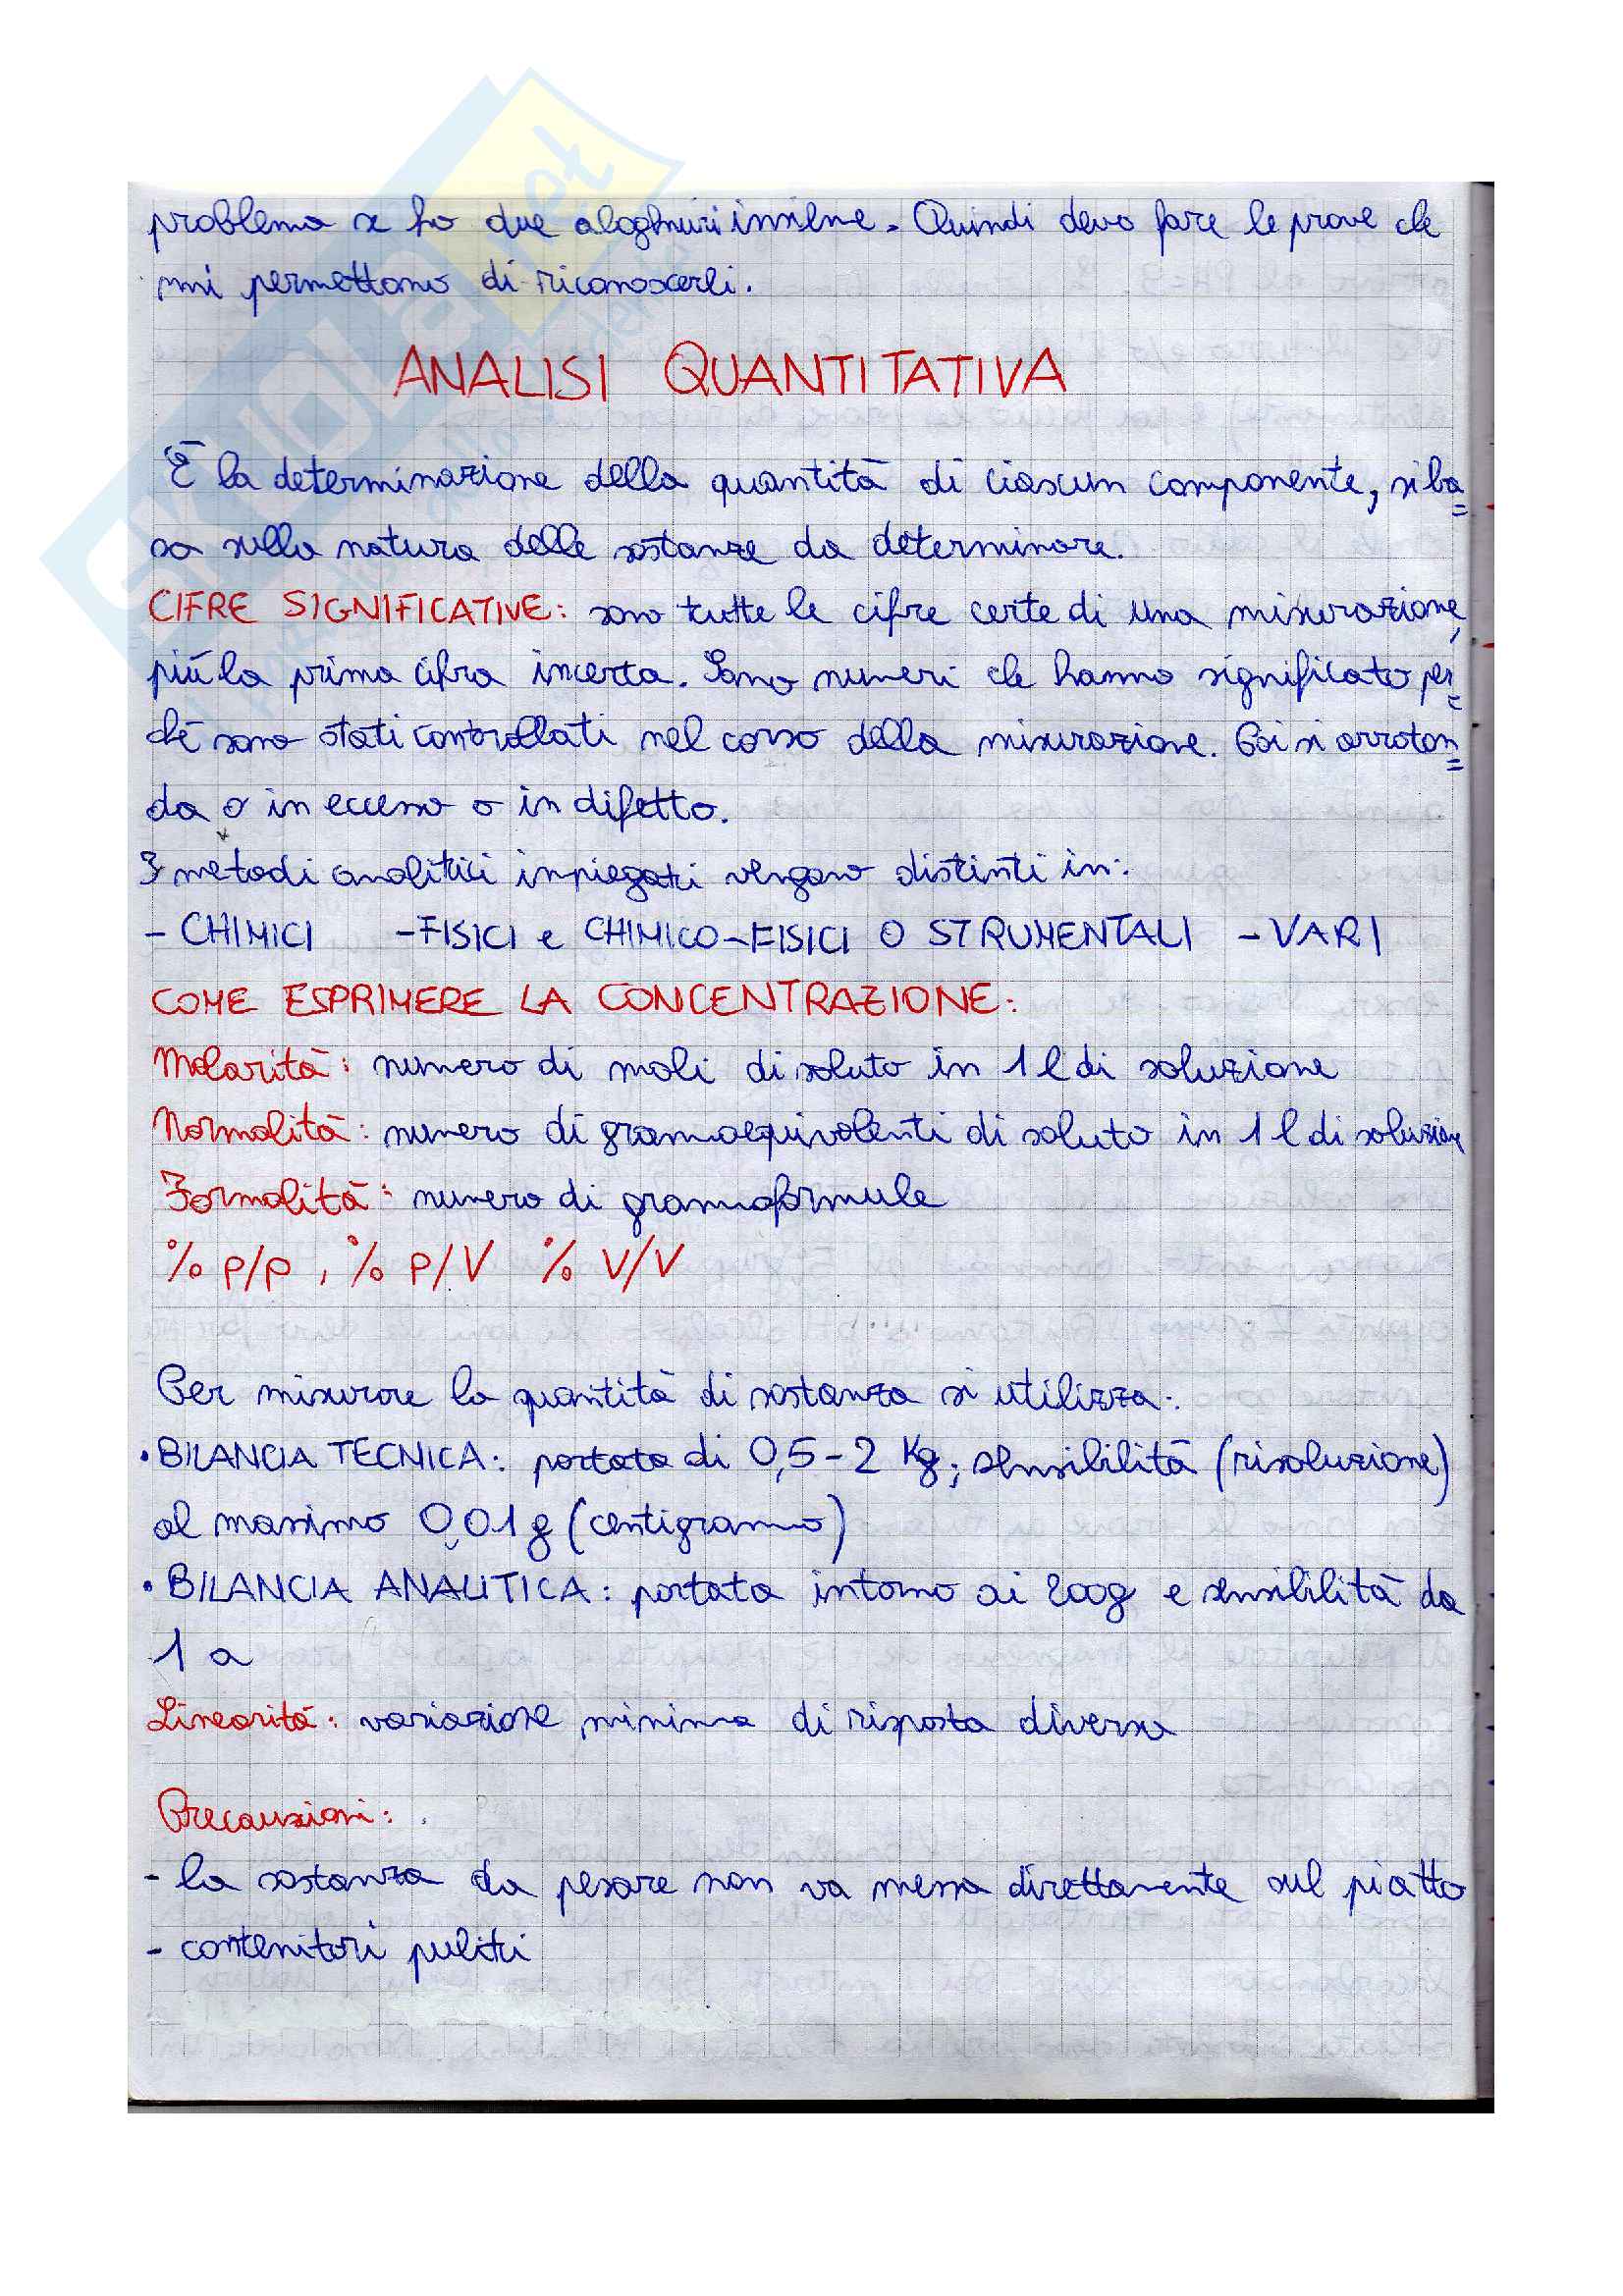 problema se ho due aloghenuri insieme. Quindi devo fare le prove che
mi permettano di riconoscerli.
ANALISI QUANTITATIVA
È la determinazione della quantità di ciascun componente, si ba
sa sulla natura delle sostanze da determinare.
CIFRE SIGNIFICATIVE: sono tutte le cifre certe di una misurazione,
più la prima cifra incerta. Sono numeri che hanno significato per
chè sono stati controllati nel corso della misurazione. Poi si arroton
da o in eccesso o in difetto.
I metodi analitici inpiegati vengono distinti in:
- CHIMICI - FISICI e CHIMICO-FISICI O STRUMENTALI - VARI
COME ESPRIMERE LA CONCENTRAZIONE:
Molarità: numero di moli di soluto in 1 l di soluzione
Normalità: numero di grammoequivolenti di soluto in 1 l di soluzione
Formalità: numero di grammoformule
% p/p, % p/V % V/V
Per misurare la quantità di sostanza si utilizza:
• BILANCIA TECNICA: portata di 0,5-2 Kg; sensibilità (risoluzione)
al massimo 0,01 g (centigrammo)
• BILANCIA ANALITICA: portata intorno ai 200g e sensibilità da
1 a
Linearità: variazione minima di risposta diversa
Precauzioni:
- la sostanza da pesare non va messa direttamente sul piatto
- contenitori puliti